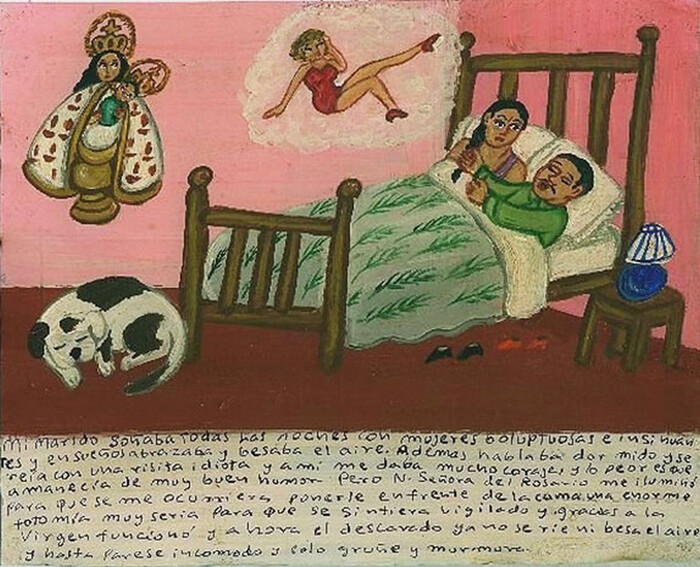 Mi Marido Soñaba todas las noches con mujeres boluptuosas e insihuan
tes y en sueños abrazaba y besaba el aire. Ademas hablaba dormido y se
reia con una risita idiota y a mi me daba mucho coraje, y lo peor es que
amanecia de muy buen humor Pero N. Señora del Rosario me iluminó
para que se me ocurriera ponerle enfrente de la cama, una enorme
foto mia muy seria para que se sintiera vigilado y gracias a la
Virgen funcionó y ahora el descarado ya no se rie ni besa el aire
y hasta parese incomodo y solo gruñe y murmora.